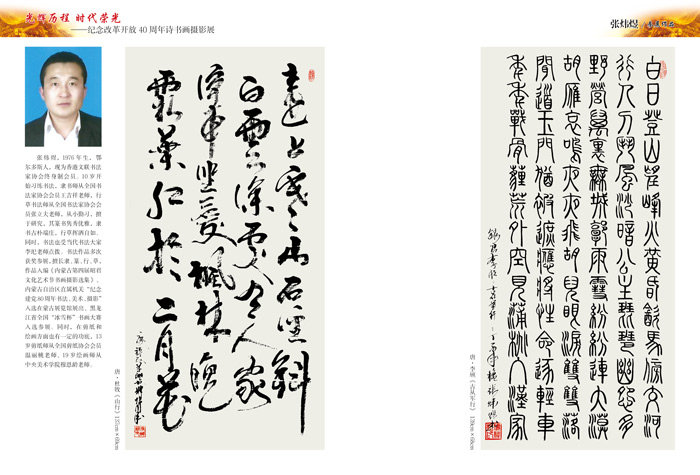 光辉历程 时代荣光
——纪念改革开放40周年诗书画摄影展
张炜煜
张炜煜,1976年生,鄂
尔多斯人,现为香港文联书法
家协会终身制会员。10岁开
始习练书法,隶书师从全国书
法家协会会员王吉祥老师,行
草书法师从全国书法家协会会
员张立大老师,从小勤习,擅
于研究,其篆书隽秀优雅,隶
书古朴端庄,行草挥洒自如。
同时,书法也受当代书法大家
李纪老师点拨。书法作品多次
获奖参展,擅长隶、篆、行、草,
作品入编《内蒙古第四届昭君
文化艺术节书画摄影选集》。
内蒙古自治区直属机关“纪念
建党80周年书法、美术、摄影”
入选在蒙古展览馆展出。黑龙
江省全国“冰雪杯”书画大赛
入选参展。同时,在剪纸和
绘画方面也有一定的功底,13
岁剪纸师从全国剪纸协会会员
温丽桃老师,19岁绘画师从
中央美术学院穆恩龄老师。
遠上寒山石徑斜
白雲深處有人家
停車坐愛楓林晚
霜葉紅於二月花
唐·杜牧《山行》135cm×69cm
白日登山望峰火黄昏飲馬傍交河
行人刁斗風沙暗公主琵琶幽怨多
野營萬里無城郭雨雪紛紛連大漠
胡雁哀鳴夜夜飛胡兒眼淚雙雙落
聞道玉門猶被遮應將性命逐輕車
年年戰骨薶荒外空見蒲桃入漢家
唐·李颀《古从军行》138cm×68cm